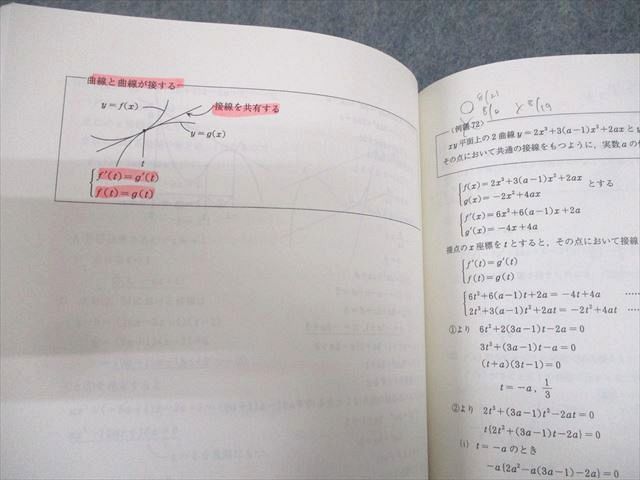 曲線と曲線が接する
y=f(x)
接線を共有する
y=g(x)
t
f'(t)=g'(t)
f(t)=g(t)
8/21
8/19
〈例題72〉
xy平面上の2曲線y=2x³+3(a-1)x²+2axと
その点において共通の接線をもつように，実数aの
f(x)=2x³+3(a-1)x²+2ax
g(x)=-2x²+4ax
とする
f'(x)=6x²+6(a-1)x+2a
g'(x)=-4x+4a
接点のx座標をtとすると，その点において接線
f'(t)=g'(t)
f(t)=g(t)
6t²+6(a-1)t+2a=-4t+4a ……
2t³+3(a-1)t²+2at=-2t²+4at ……
①より 6t²+2(3a-1)t-2a=0
3t²+(3a-1)t-a=0
(t+a)(3t-1)=0
t=-a, 1/3
②より 2t³+(3a-1)t²-2at=0
t{2t²+(3a-1)t-2a}=0
(i) t=-a のとき
-a{2a²-a(3a-1)-2a}=0